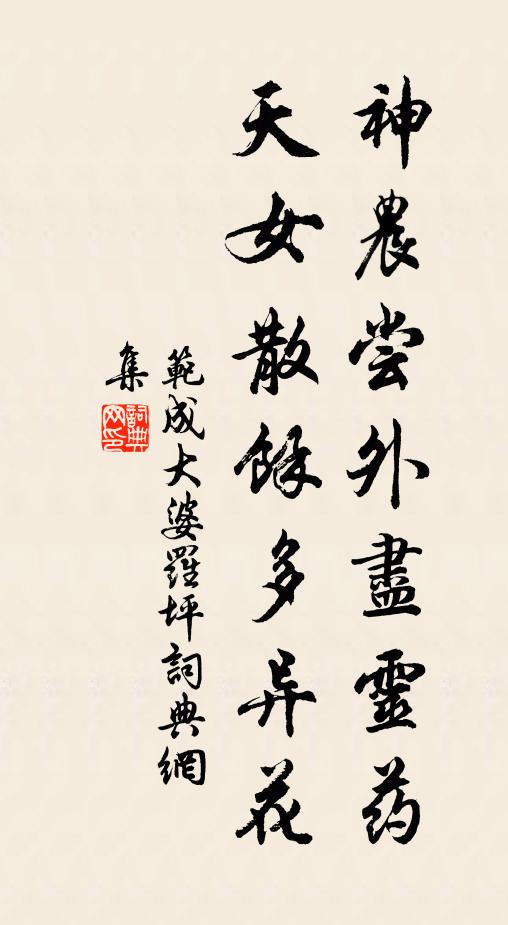 神農尝外盡靈药
天女散餘多异花
範成大婆羅坪詞典網
集
詞典网印